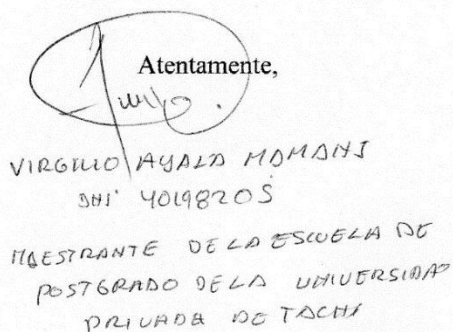 Atentamente,
VIRGILIO AYALA MAMANI
DNI 40198205
MAESTRANTE DE LA ESCUELA DE
POSTGRADO DE LA UNIVERSIDAD
PRIVADA DE TACNA